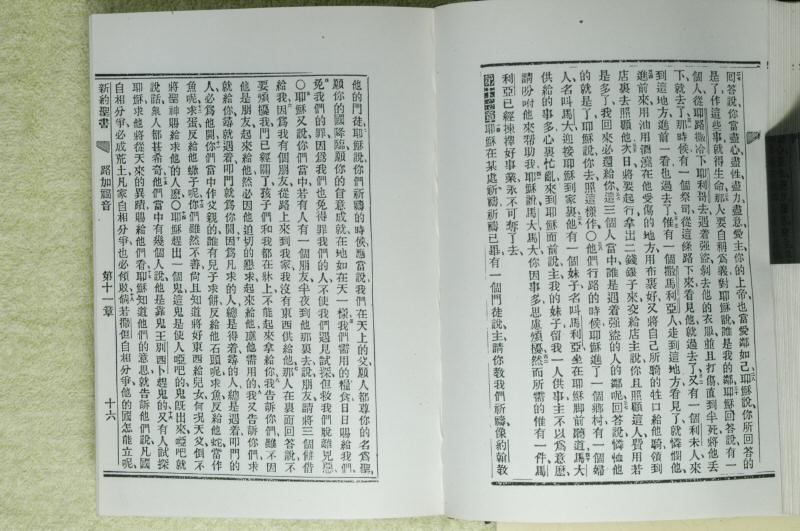 回答說你當盡心盡性盡力盡意愛主你的上帝也當愛鄰如己耶穌說你所回答的
是了作這些事就得生命那人要自稱爲義對耶穌說誰是我的鄰耶穌回答說有一
個人從耶路撒冷下耶利哥去遇着强盜剝去他的衣服並且打傷直到半死將他丟
下就去了那時候有一個祭司從這條路下來看見他就過去了又有一個利未人來
到這地方進前一看也過去了惟有一個撒馬利亞人走到這地方看見了就憐憫他
進前來用油用酒灑在他受傷的地方用布裹好又將自己所騎的牲口給他騎領到
店裏去照顧他次日將要起行拿出二錢銀子來交給店主說你且照顧這人費用若
是多了我回來必還給你這三個人當中誰是遇着强盜的人的鄰呢回答說憐恤他
的就是了耶穌說你去照這樣作○他們行路的時候耶穌進了一個鄉村有一個婦
人名叫馬大迎接耶穌到家裏他有一個妹子名叫馬利亞坐在耶穌脚前聽道馬大
供給的事多心裏忙亂來到耶穌面前說主我的妹子留我一人供事主不以爲意麽
請吩咐他來幫助我耶穌說馬大馬大你因事多思慮煩擾然而所需的惟有一件馬
利亞已經揀擇好事業永不可奪了去
耶穌在某處祈禱祈禱已畢有一個門徒說主請你教我們祈禱像約翰教
他的門徒耶穌說你們祈禱的時候應當說我們在天上的父願人都尊你的名爲聖
願你的國降臨願你的旨意成就在地如在天一樣我們需用的糧食日日賜給我們
免我們的罪因爲我們也免得罪我們的人不使我們遇見試探但救我們脫離兇惡
○耶穌又說你們當中若有人有一個朋友半夜到他那裏去說朋友請將三個餅借
給我因爲我有個朋友從路上來到我家我沒有東西供給他那人在裏面回答說不
要煩擾我門已經關了孩子們和我都在牀上不能起來拿給你我告訴你們雖不因
他是朋友起來給他然必因他迫切的懇求起來給他應他需用的我又告訴你們求
就給你尋就遇着叩門就爲你開因爲凡求的人總是得着尋的人總是遇着叩門的
人必爲他開你們當中作父親的誰有兒子求餅反給他石頭呢求魚反給他蛇當作
魚呢求蛋反給他蠍子呢你們雖然不善尚且知道將好東西給兒女何況天父倒不
將聖神賜給求他的人麽○耶穌趕出一個鬼這鬼是使人啞吧的鬼旣出來啞吧就
說話衆人都甚希奇他們當中有幾個人說他是靠鬼王別西卜趕鬼的又有人試探
耶穌求他將從天來的異蹟賜給他們看耶穌知道他們的意思就告訴他們說凡國
自相分爭必成荒土凡家自相分爭也必傾敗倘若撒但自相分爭他的國怎能立呢
新約聖書 路加福音 第十一章 十六